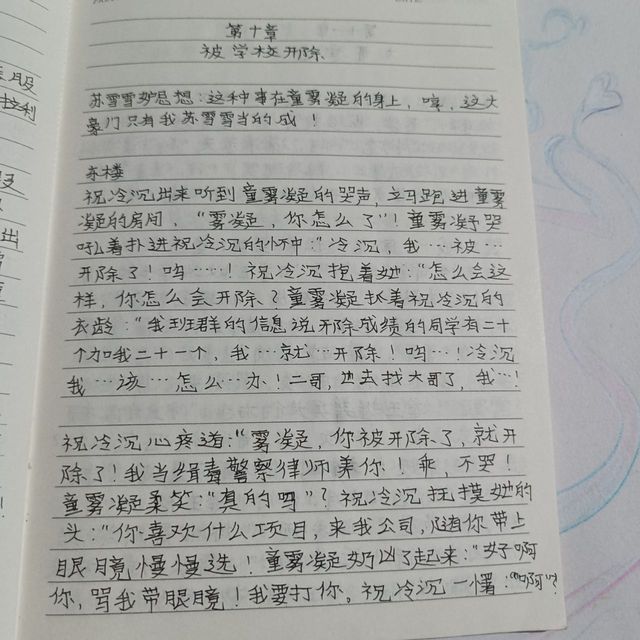 第十章
被学校开除
苏雪雪想：这种事在童雾凝的身上，哼，这大
豪门只有我苏雪雪当的成！
东楼
祝冷沉出来听到童雾凝的哭声，立马跑进童雾
凝的房间，“雾凝，你怎么了”！童雾凝哭
吼着扑进祝冷沉的怀中：“冷沉，我…被…
开除了！呜……！祝冷沉抱着她：“怎么会这
样，你怎么会开除？童雾凝扒着祝冷沉的
衣龄：“我班群的信息说开除成绩的同学有二十
个加我二十一个，我…就…开除！呜…！冷沉
我…该…怎么…办！二哥，也去找大哥了，我…！
祝冷沉心疼道：“雾凝，你被开除了，就开
除了！我当缉毒警察律师养你！乖，不哭！
童雾凝柔笑：“真的吗”？祝冷沉抚摸她的
头：“你喜欢什么项目，来我公司，随你带上
眼镜慢慢选！童雾凝奶凶了起来：“好啊
你，骂我带眼镜！我要打你。祝冷沉一愣：“啊”？
股
出